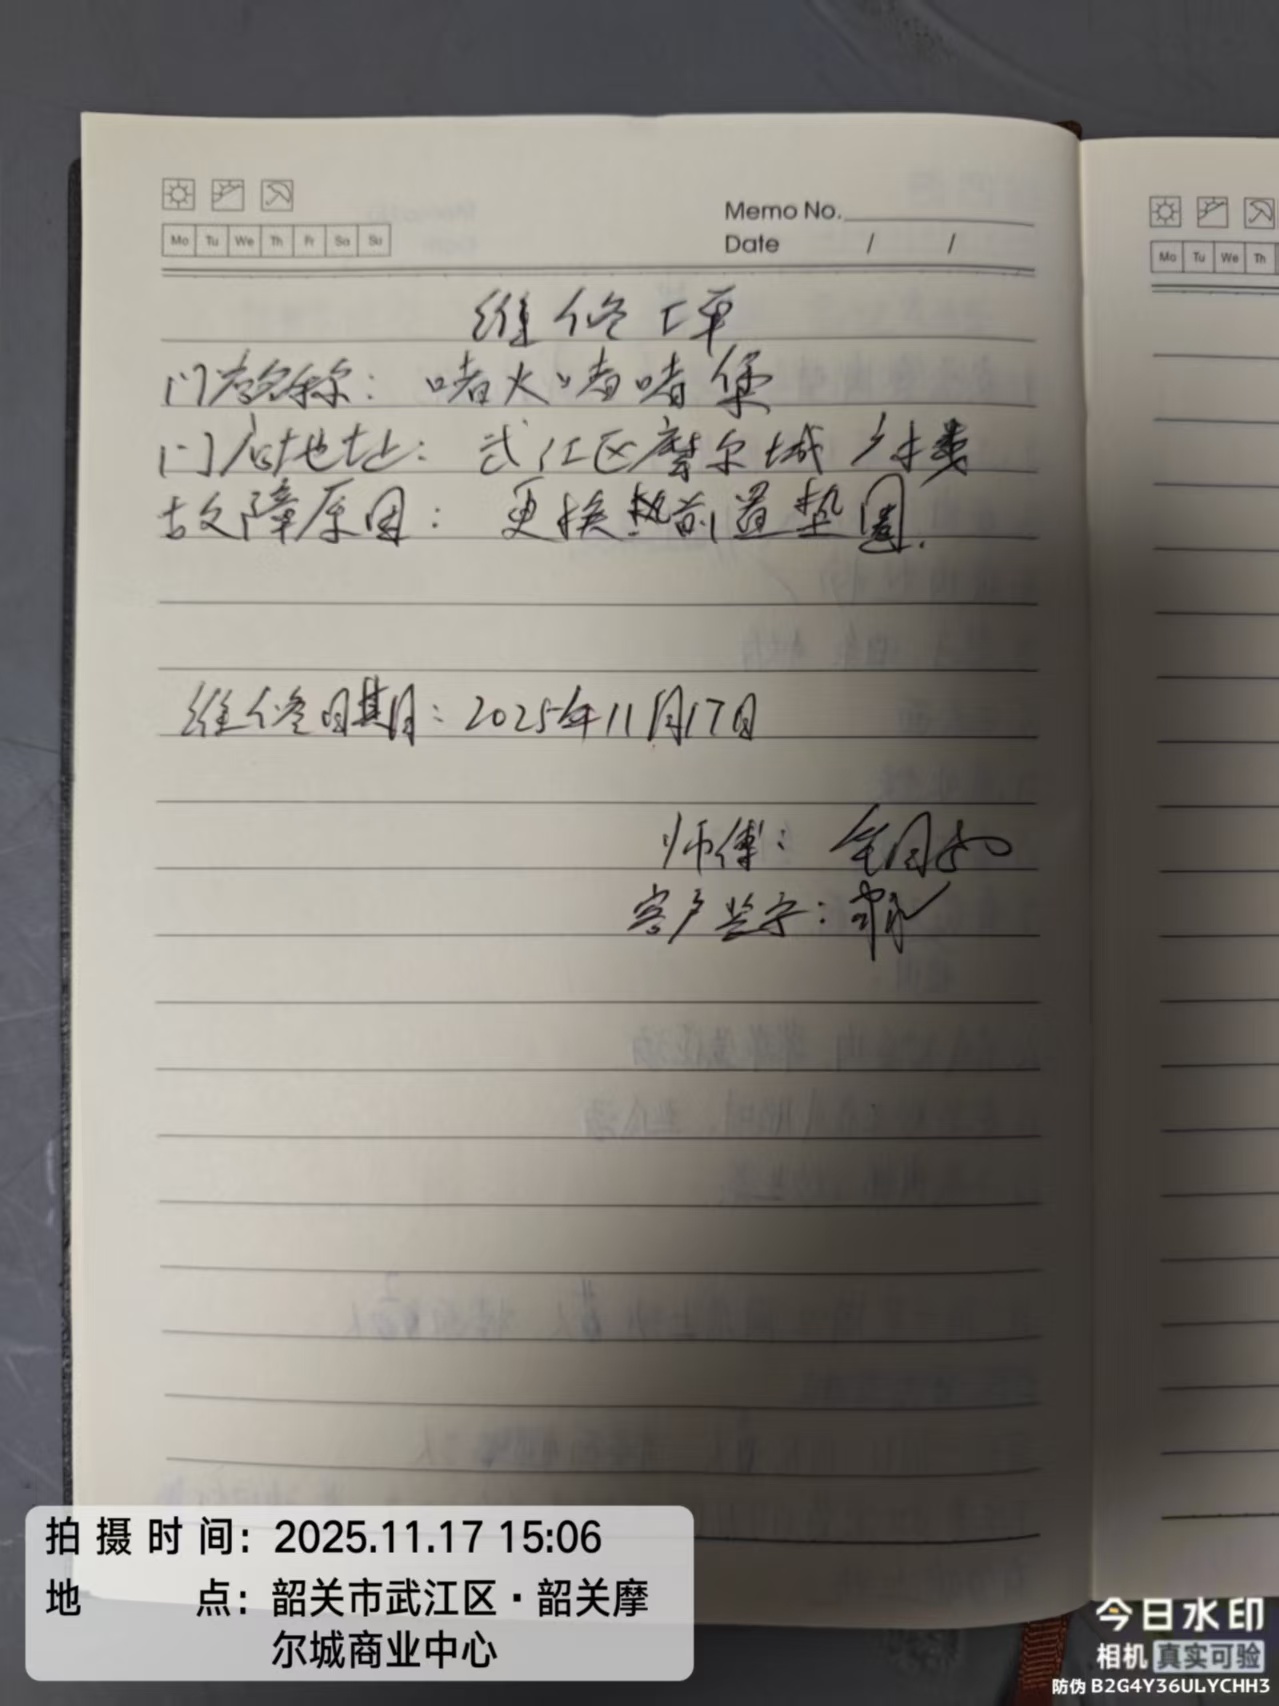 Mo Tu We Th Fr Sa Su
Memo No.
Date / /
维修单
门店名称：啫火啫啫煲
门店地址：武江区摩尔城 楼
故障原因：更换热前置垫圈.
维修日期：2025年11月17日
师傅：
客户签字：
Mo Tu We Th
拍摄时间：2025.11.17 15:06
地点：韶关市武江区·韶关摩
尔城商业中心
今日水印
相机 真实可验
防伪 B2G4Y36ULYCHH3